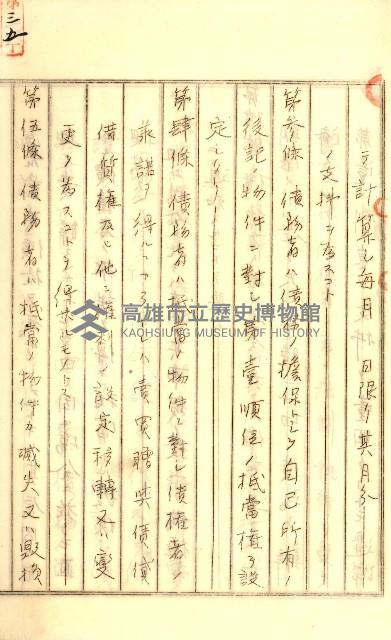 テ計算シ毎月 日限リ其月分
ノ支拂ヲ為スコト
第參條 債務者ハ債務擔保トシテ自己所有ノ
後記ノ物件ニ對シ第壹順位ノ抵當權ヲ設
定シタリ
第肆條 債務者ハ抵當ノ物件ニ對シ債權者ノ
承諾ヲ得ルトハ賣買贈與賃貸
借質權及ヒ他ニ權利ノ設定移轉又ハ變
更ノ為スコトヲ得サルモノトス
第伍條 債務者ハ抵當ノ物件カ滅失又ハ毀損
高雄市立歷史博物館
KAOHSIUNG MUSEUM OF HISTORY
第三五